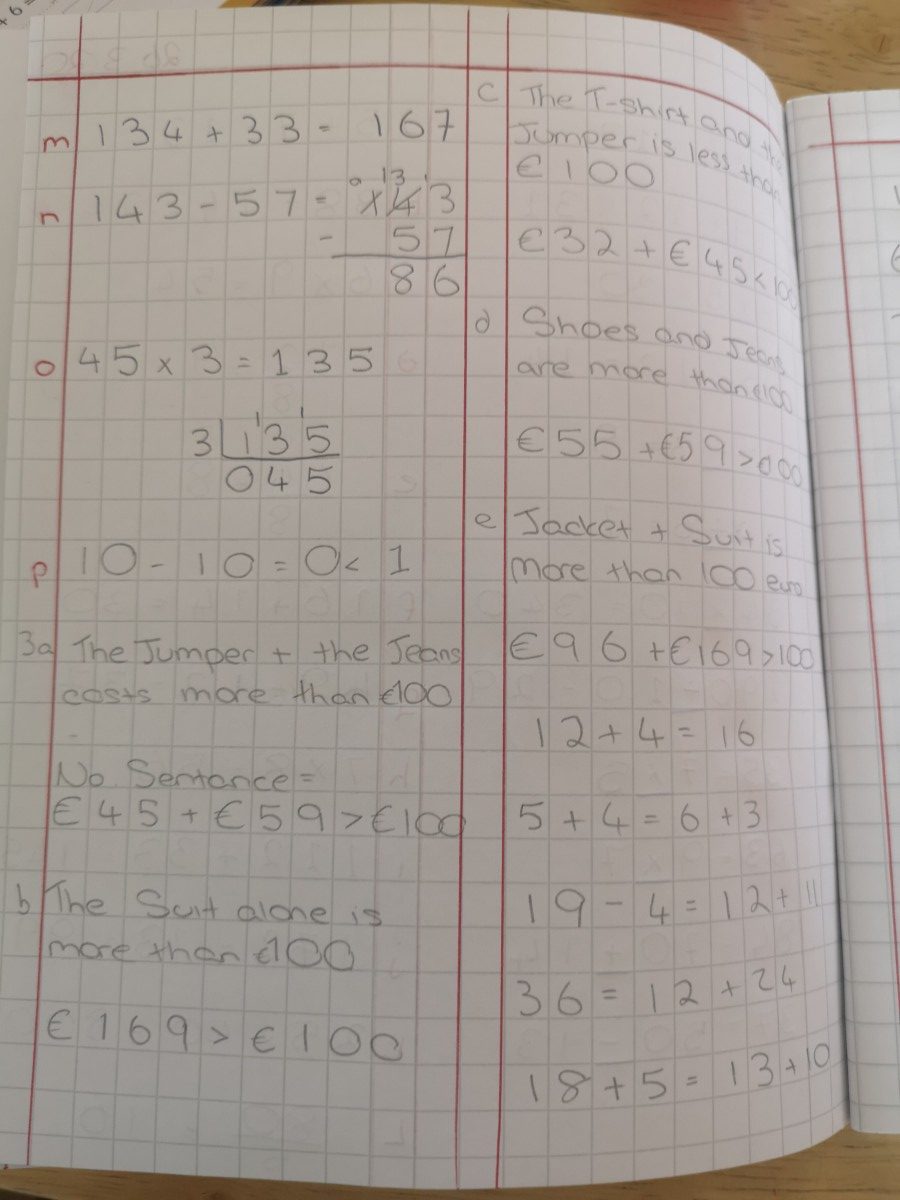 m 134 + 33 = 167
n 143 - 57 = 143
- 57
86
o 45 x 3 = 135
3 135
045
p 10 - 10 = 0 < 1
3a The Jumper + the Jeans
costs more than €100
No Sentence =
€45 + €59 > €100
b The Suit alone is
more than €100
€169 > €100
c The T-shirt and the
Jumper is less than
€100
€32 + €45 < 100
d Shoes and Jeans
are more than €100
€55 + €59 > €100
e Jacket + Suit is
more than 100 euro
€96 + €169 > 100
12 + 4 = 16
5 + 4 = 6 + 3
19 - 4 = 12 + 11
36 = 12 + 24
18 + 5 = 13 + 10